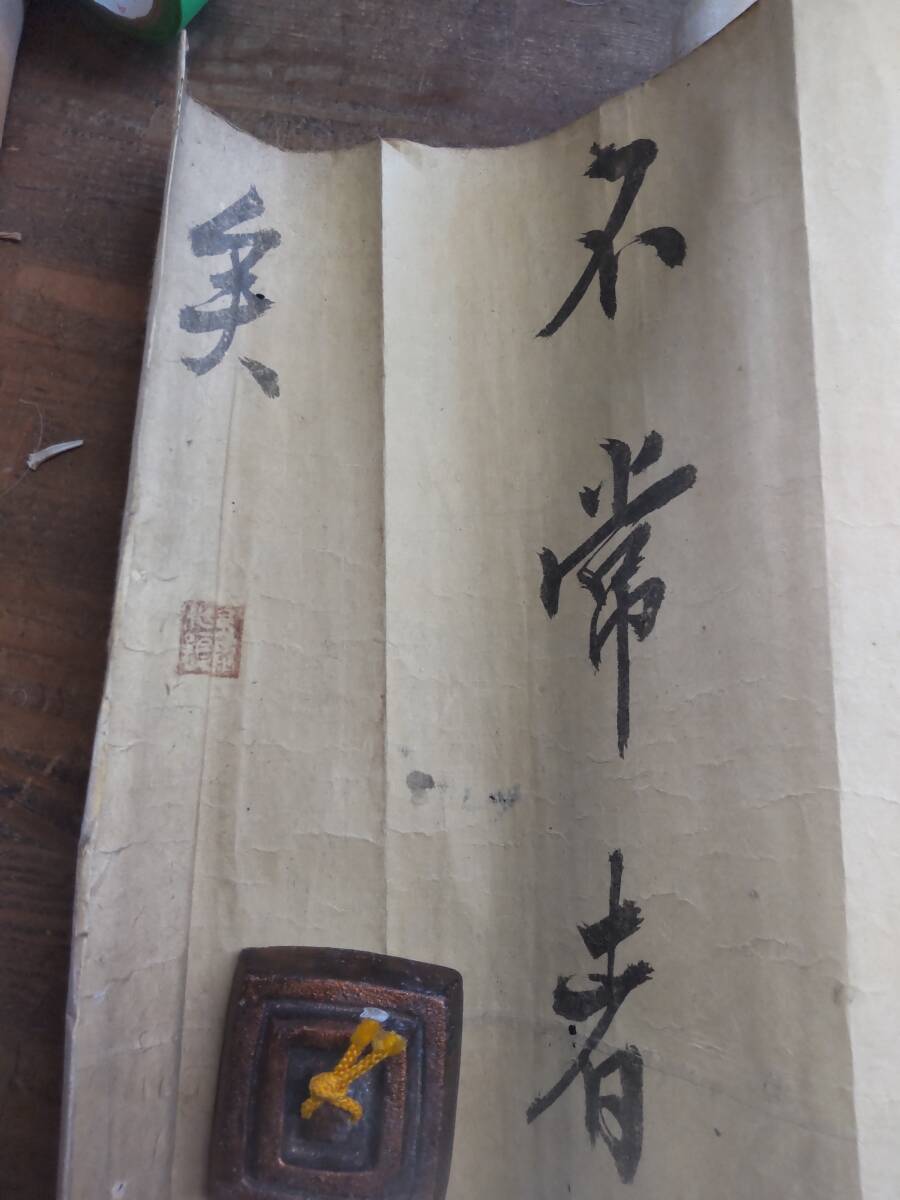 不常者
矣